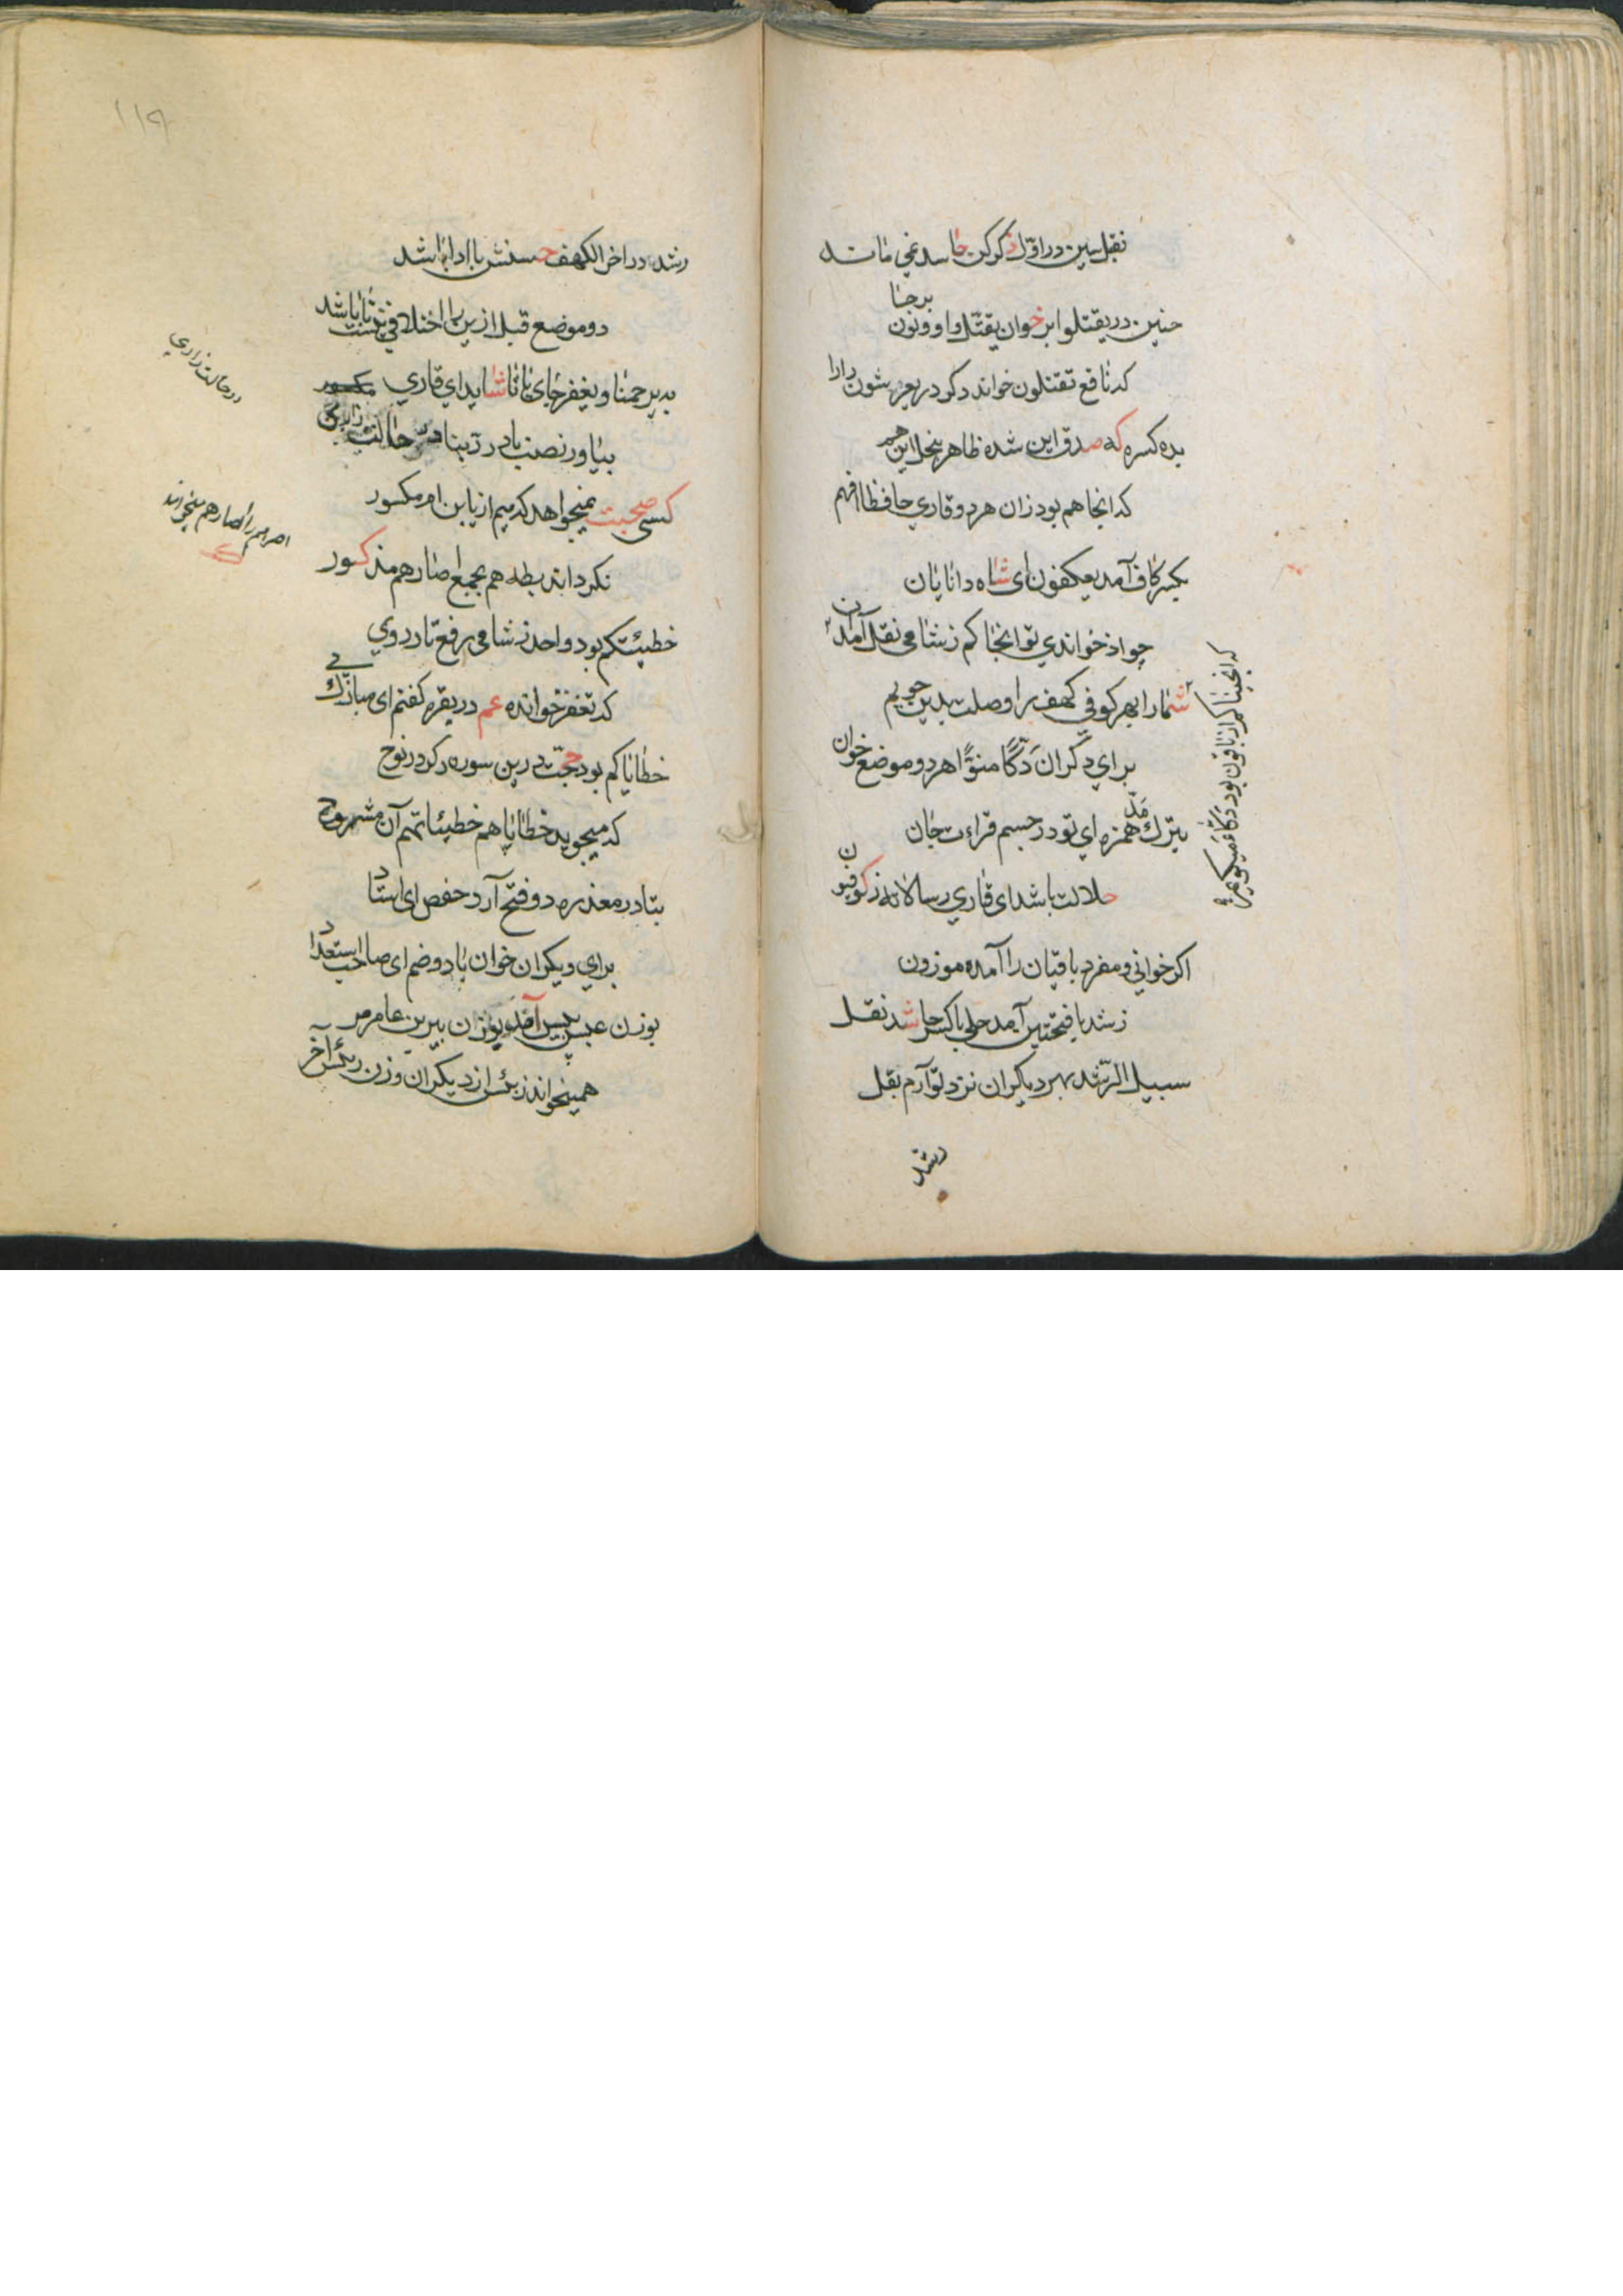 نقل سین در اوّل ذکر کن حاسد غمی مانده
چنین در یقتلوا بر خوان یقتّل واو و نون برجا
که نافع تقتلون خواند دکر در یعرشون دارا
بده کسره که صدق این شده ظاهر بنحل این هم
که انجا هم بود زان هر دو قاری حافظا افهم
بکسر کاف آمد یعکفون ای شاه دانایان
چو اذ خواندی تو انجاکم ز شامی نقل آمد آن
شمارا بهر کوفی کهف را وصلت بدین جویم
که انجینا کم از باقون بود دکّا عمیکویم
برای دکران دَکًّا منوّنًا هر دو موضع خوان
بترک مدّ همزه ای تو در جسم قراءت جان
حلالت باشد ای قاری رسالاته ز کوفیون
اکر خوانی و مفرد باقیان را آمده موزون
ز شد با فتحتین آمد حلی با کسر حا شد نقل
سبیل الرّشد بهر دیکران نزد تو آرم نقل
رشد
١١٩
رشد در اخر الکهف حسنش با ادا باشد
دو موضع قبل ازین را اختلافی نیست تا باشد
به یرحمنا و یغفر جای یا تا شاید ای قاری
بیاور نصب با در ربّنا در حالت زاری
در حالت زاری
کسی صحبت نمیخواهد که میم از یابن ام مکسور
نکرداند بطه هم بجمع اصارهم مذکسور
اصرهم را اصارهم میخواند
خطیئتکم بود واحد ز شامی رفع تا در وی
که تغفر خوانده عم در بقره کفتم ای مبارک پی
خطایاکم بود حجّت درین سوره دکر در نوح
که میجوید خطایاهم خطیئاتهم آن مشروح
بتا در معذره دو فتح آرد حفص ای استاد
برای دیکران خوان با دو ضم ای صاحب استعداد
بوزن عیس بیس آمد بوزن بیربن عامر مر
همیخواند ز بئس از دیکران وزن رئس آخر